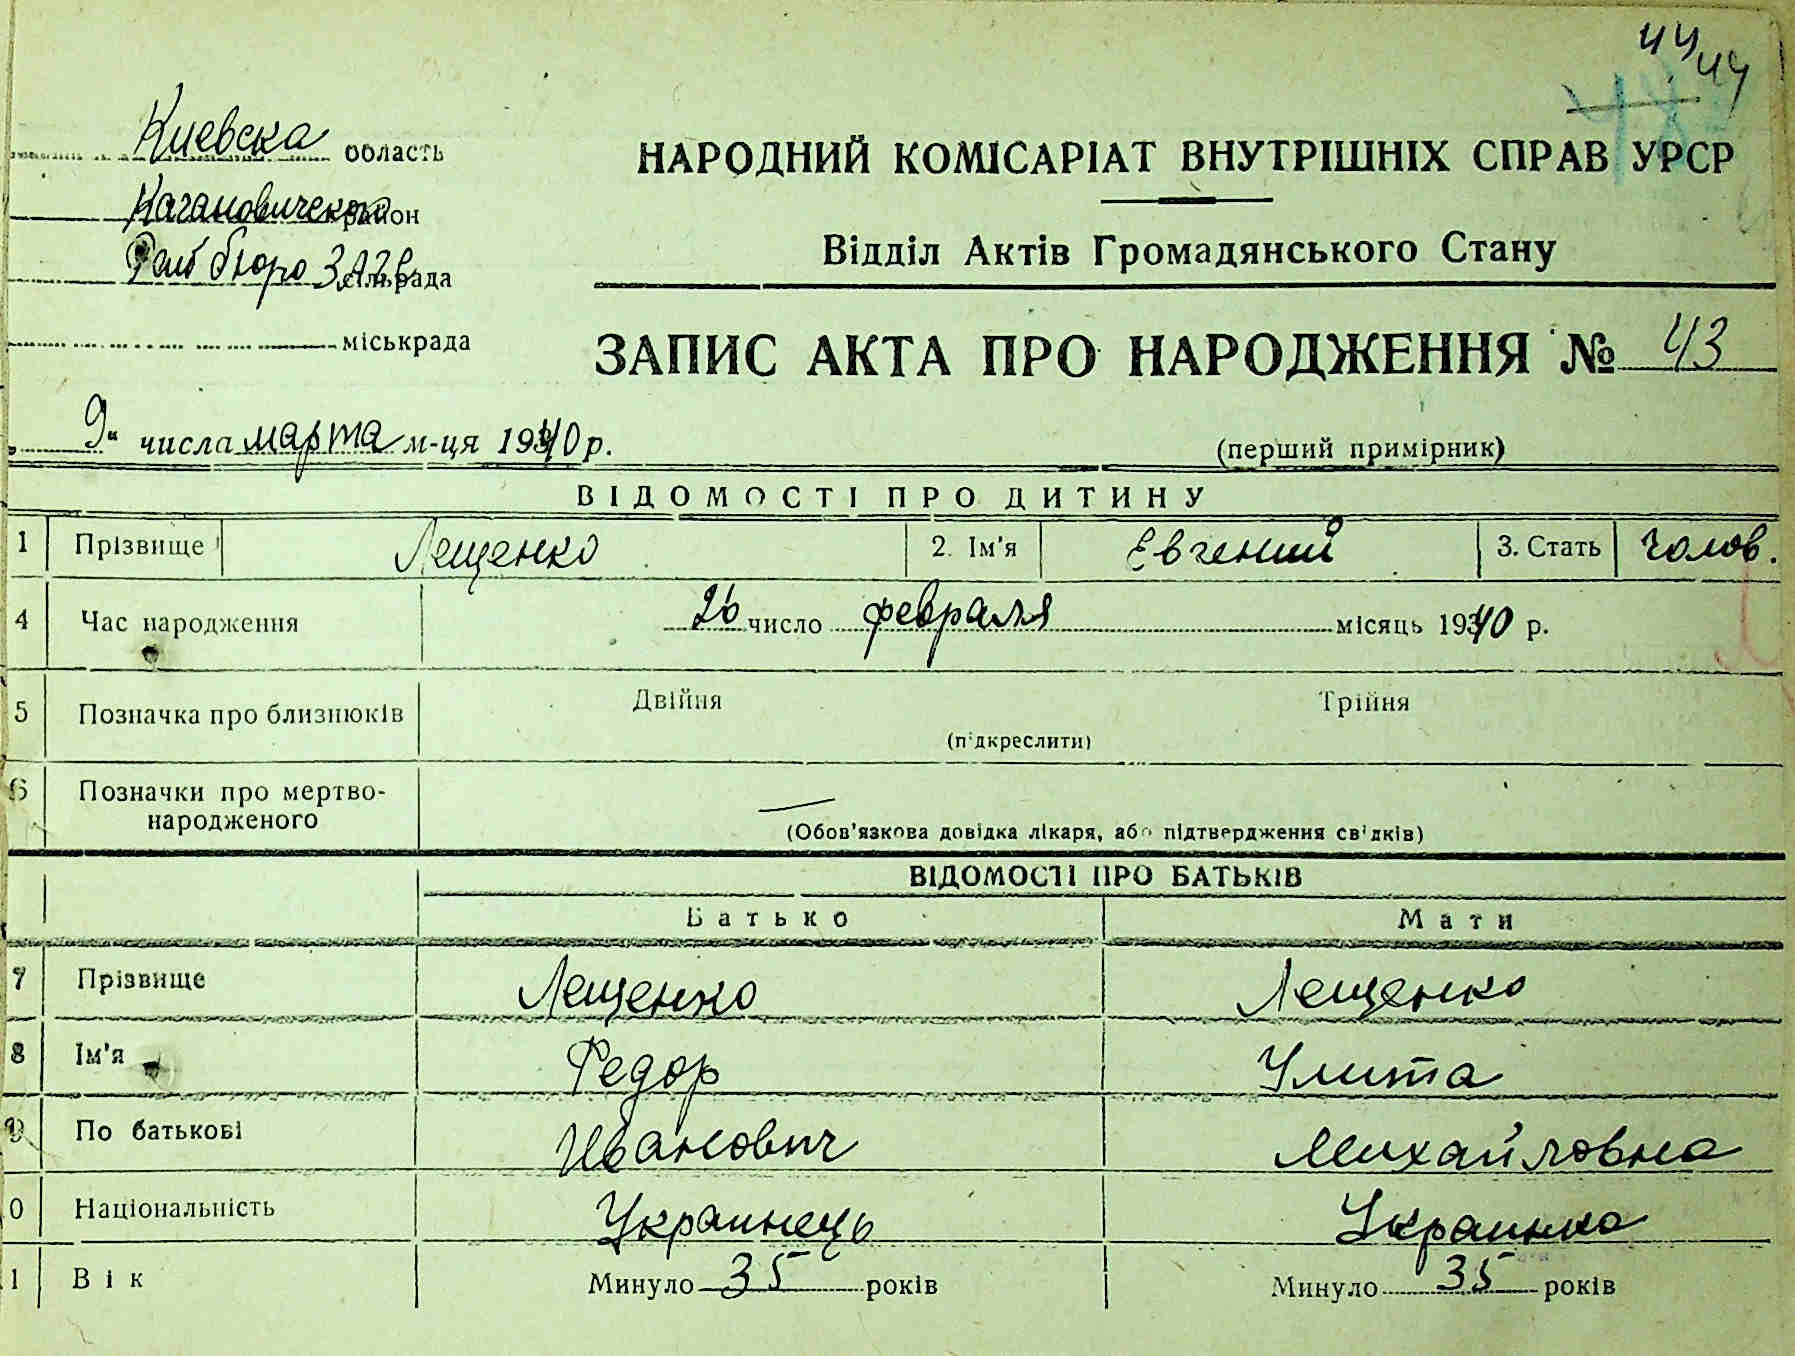 44 44
48
Киевска область
НАРОДНИЙ КОМІСАРІАТ ВНУТРІШНІХ СПРАВ УРСР
Кагановическ район
Відділ Актів Громадянського Стану
Рай бюро ЗАГС сільрада
міськрада
ЗАПИС АКТА ПРО НАРОДЖЕННЯ № 43
„9“ числа марта м-ця 1940 р.
(перший примірник)
ВІДОМОСТІ ПРО ДИТИНУ
1 Прізвище Лещенко 2. Ім'я Евгений 3. Стать чолов.
4 Час народження 26 число февраля місяць 1940 р.
5 Позначка про близнюків Двійня Трійня
(підкреслити)
6 Позначки про мертво-
народженого
(Обов'язкова довідка лікаря, або підтвердження свідків)
ВІДОМОСТІ ПРО БАТЬКІВ
Батько Мати
7 Прізвище Лещенко Лещенко
8 Ім'я Федор Улита
9 По батькові Иванович Михайловна
0 Національність Украинець Украинка
1 Вік Минуло 35 років Минуло 35 років